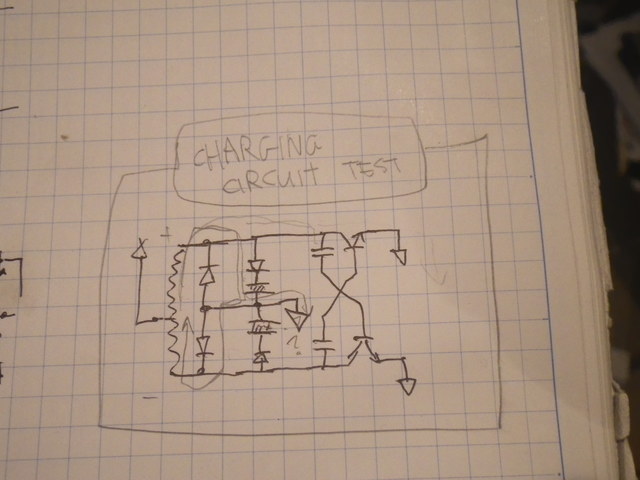 CHARGING
CIRCUIT TEST
+
X
?
−